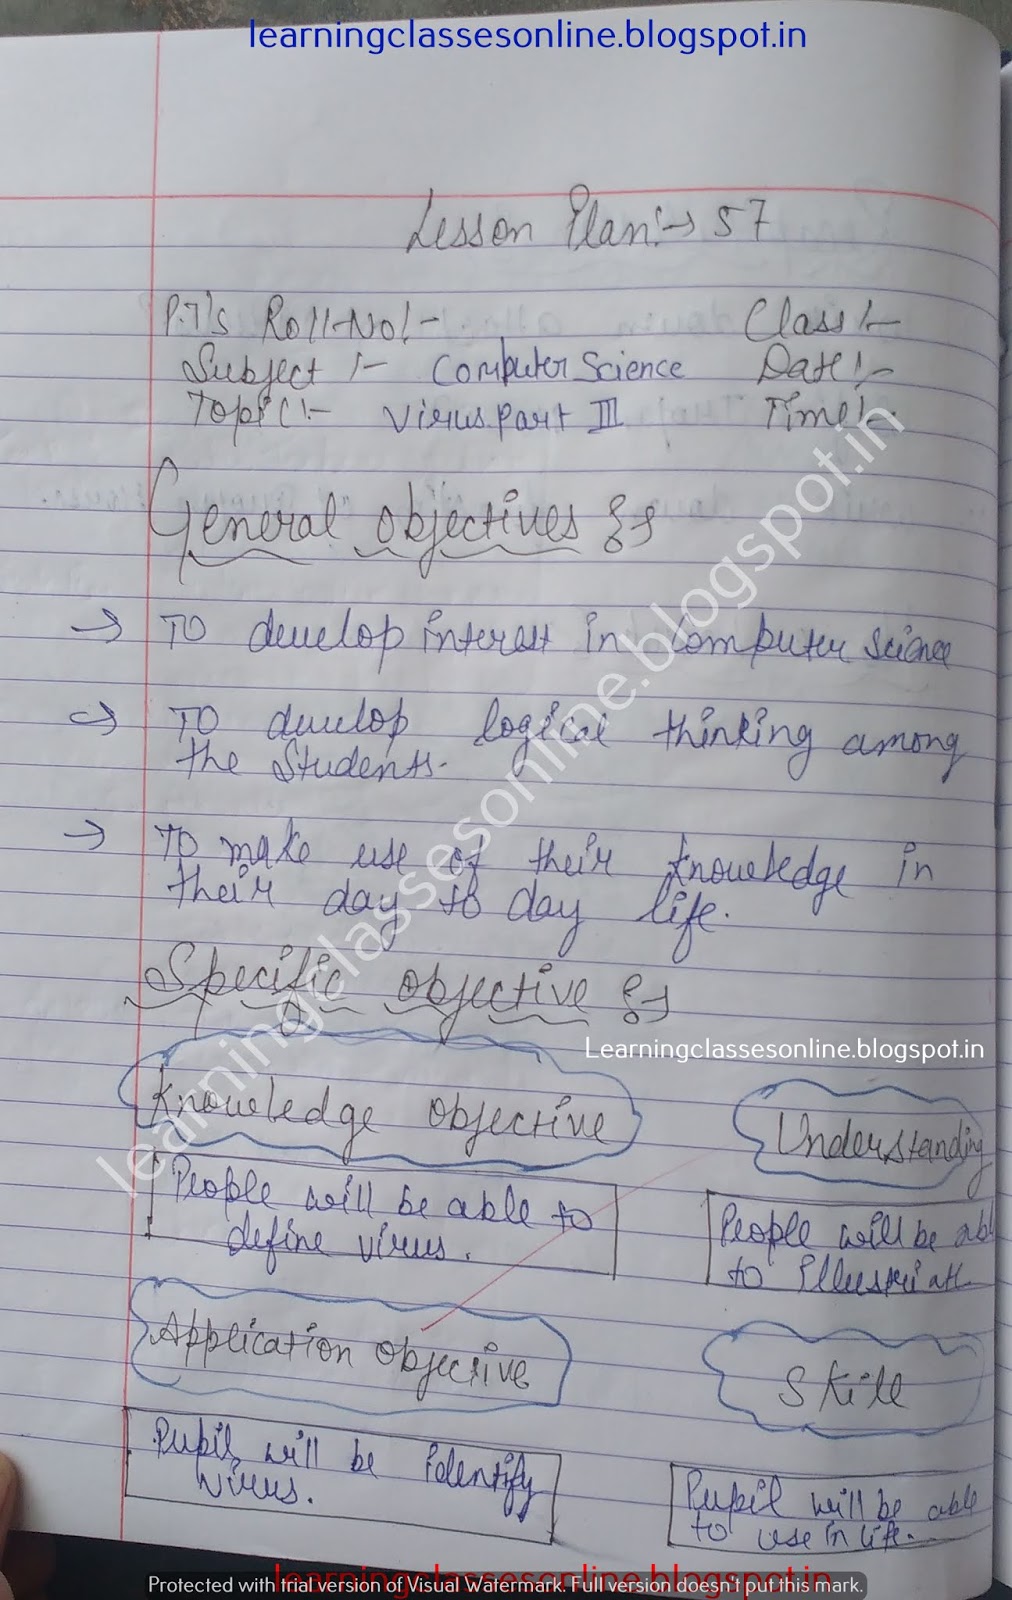 learningclassesonline.blogspot.in
Lesson Plan:→ 57
P.T's Roll.No:- Class:-
Subject :- Computer Science Date:-
Topic:- Virus part III Time:-
General objectives
→ To develop interest in Computer Science
→ To develop logical thinking among
the Students.
→ To make use of their knowledge in
their day to day life.
Specific objective
Learningclassesonline.blogspot.in
Knowledge objective Understanding
People will be able to
define virus.
People will be abl
to illustriate
Application objective Skill
Pupil will be identify
virus.
Pupil will be able
to use in life.
learningclassesonline.blogspot.in
learningclassesonline.blogspot.in
Protected with trial version of Visual Watermark. Full version doesn't put this mark.